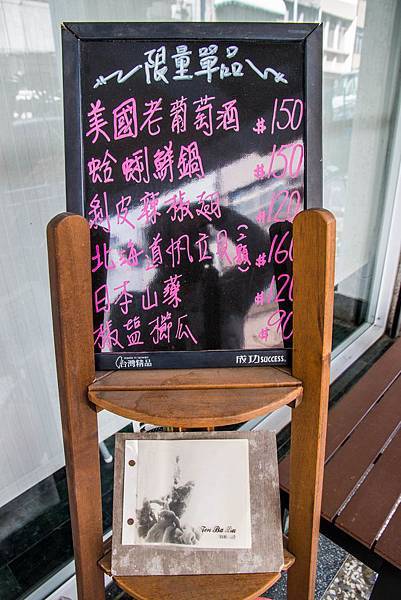 限量單品
美國老葡萄酒 $150
蛤蜊鮮鍋 $150
剝皮辣椒翅 $120
北海道帆立貝(二顆) $160
日本山藥 $120
椒鹽櫛瓜 $90
台灣精品
成功 SUCCESS.
Ten Ba Lu